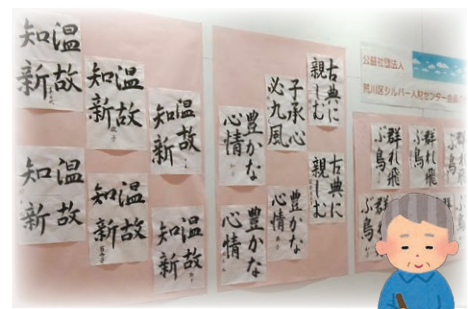 温故
知新
温故
知新
温故
知新
温故
知新
温故
知新
温故
知新
豊かな
心情
豊かな
心情
豊かな
心情
古典に
親しむ
古典に
親しむ
公益社団法人
荒川区シルバー人材センター会員
群れ飛
ぶ鳥
群れ飛
ぶ鳥